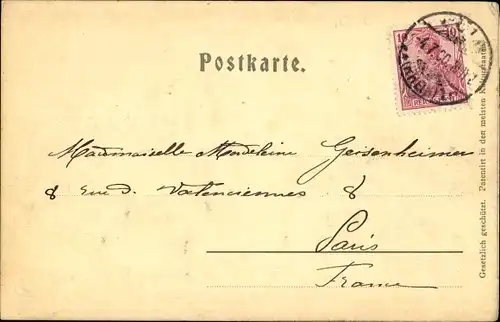 Postkarte.
10
Mademoiselle Madeleine Geisenheimer
8 rue d. Valenciennes 8
Paris
France
Gesetzlich geschützt. Patentirt in den meisten Kulturstaaten